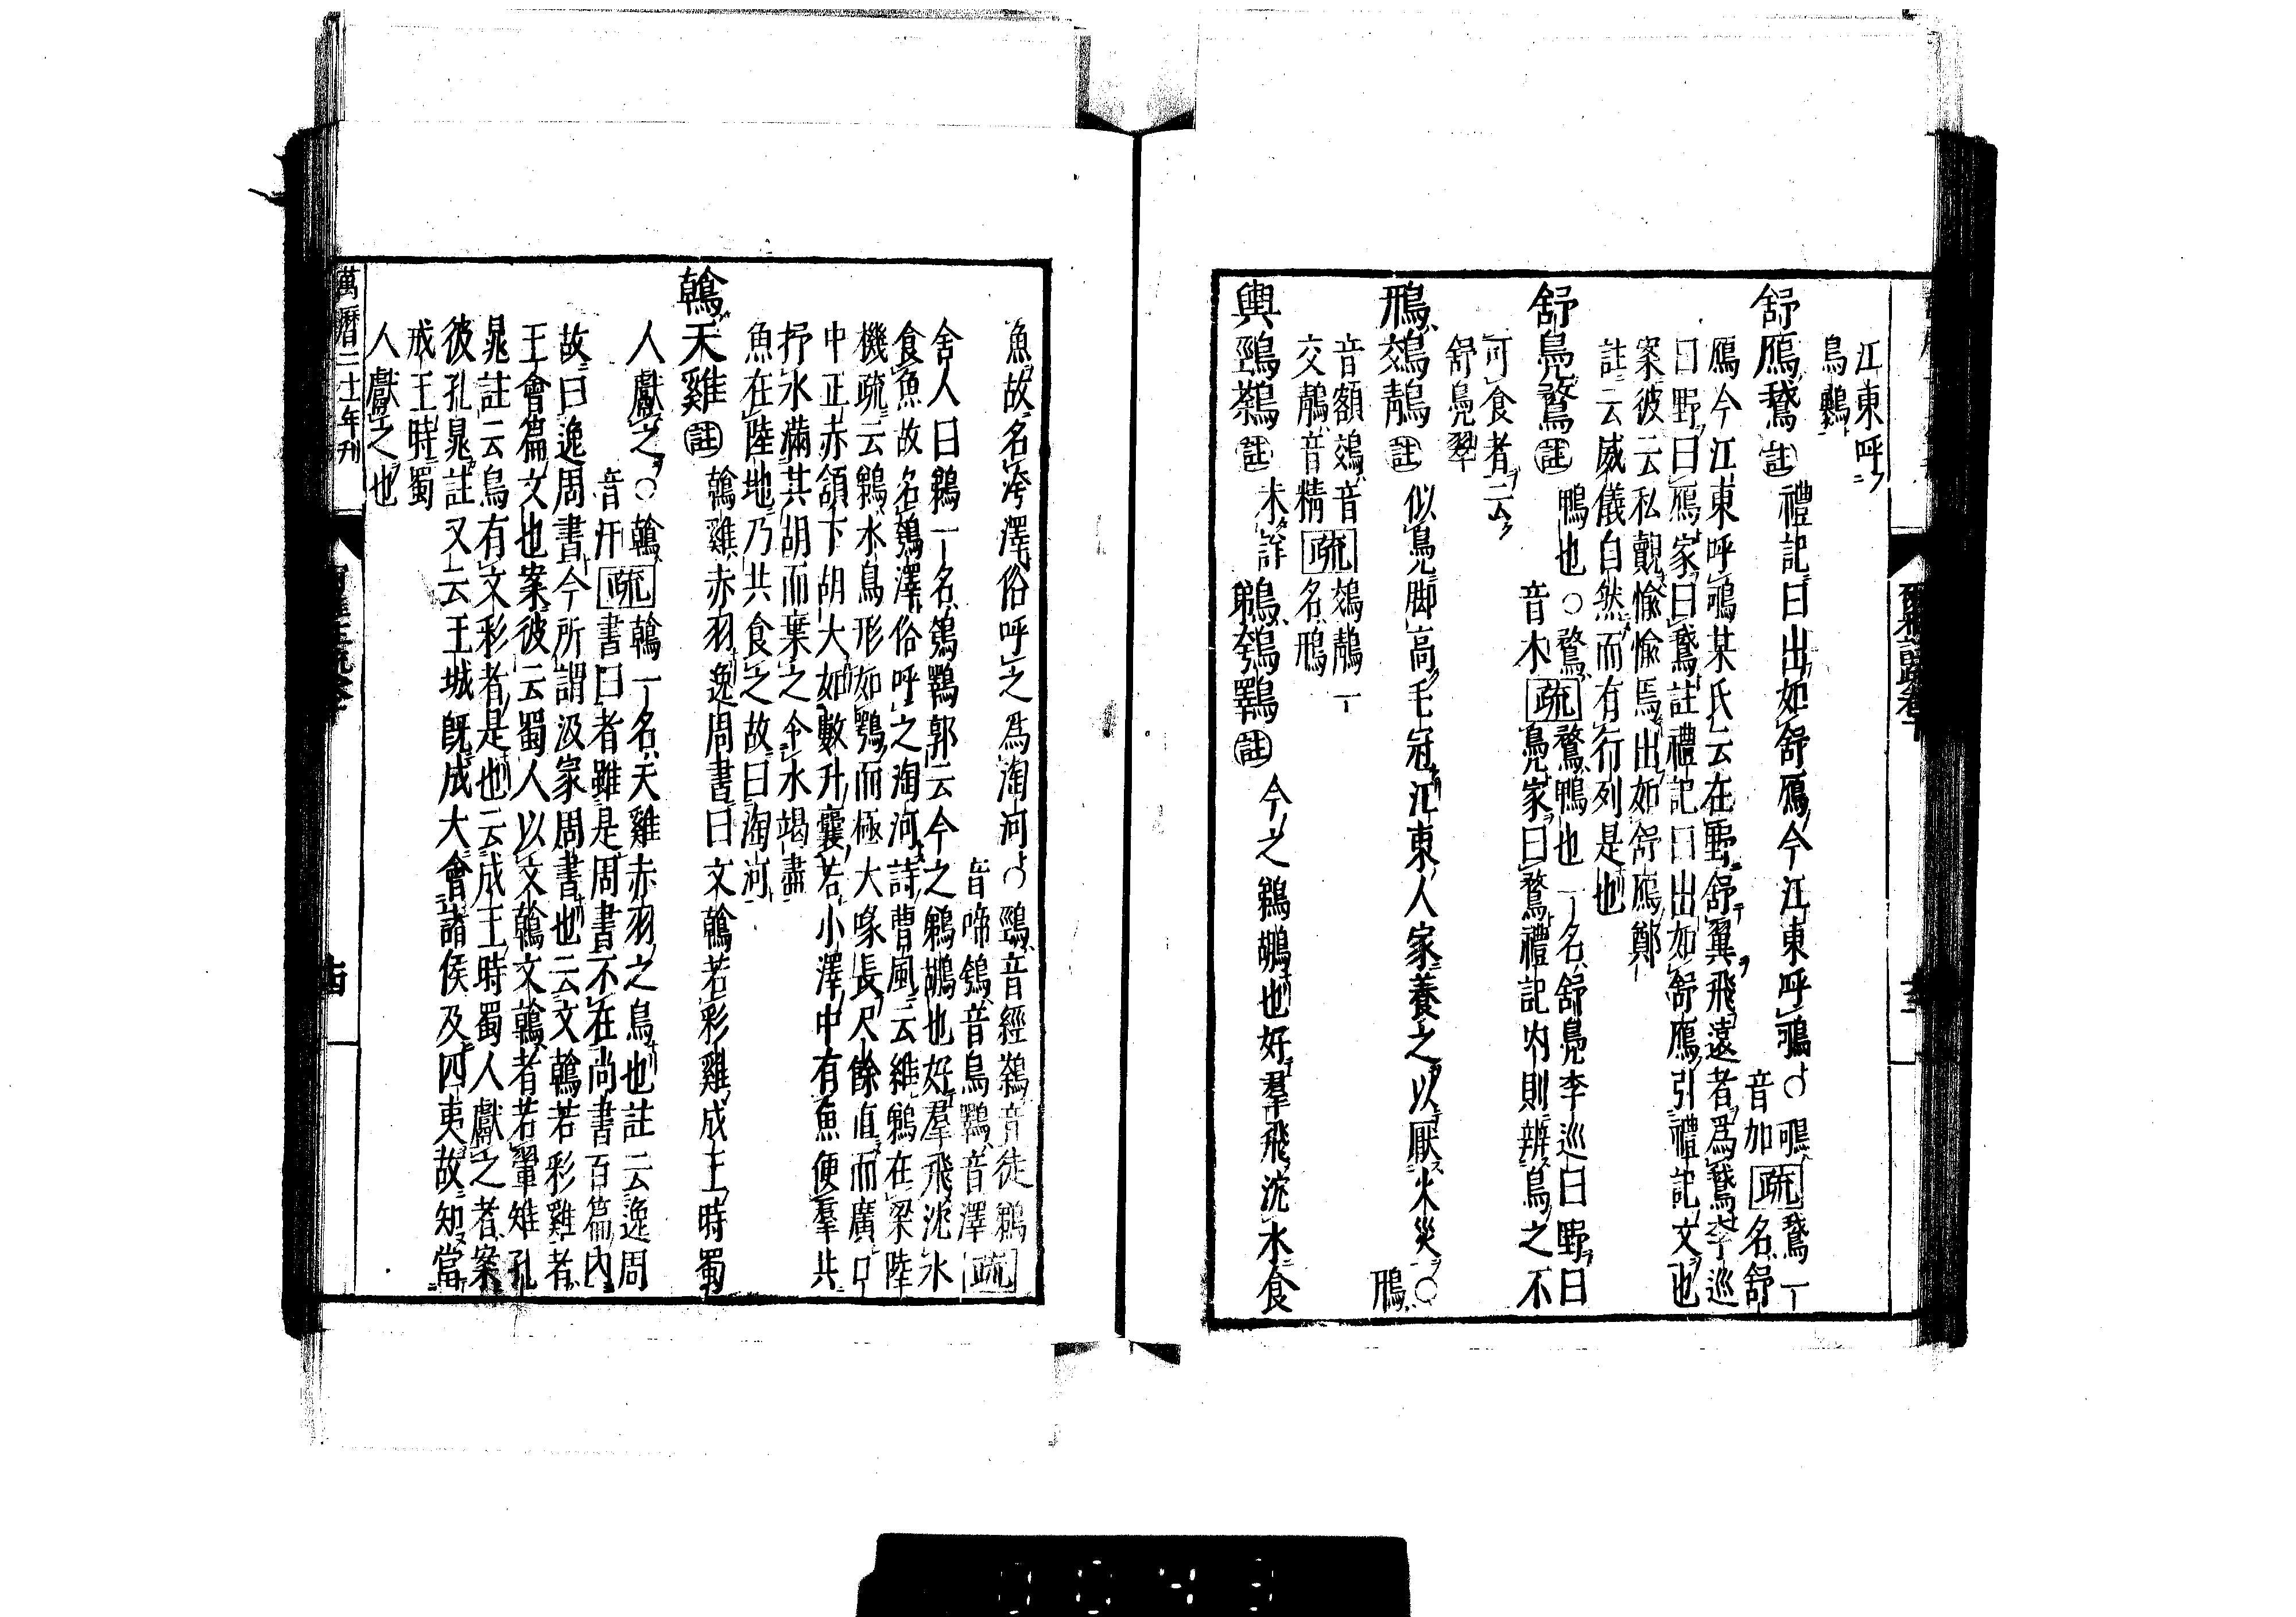 江東呼
烏鸔
舒鴈鵝 註 禮記曰出如舒鴈今江東呼鳴○鴚
音加 疏 鵝一名舒
鴈今江東呼鳴某氏云在野舒翼飛遠者爲鵝李巡
曰野曰鴈家曰鵝註禮記曰出如舒鴈引禮記文也
案彼云私覿愉愉焉出如舒鴈鄭
註云威儀自然而有行列是也
舒鳧鶩 註 鴨也○鶩
音木 疏 鶩鴨也一名舒鳧李巡曰野曰
鳧家曰鶩禮記內則辨鳥之不
可食者云
舒鳧翠
鳽鵁鶄 註 似鳧脚高毛冠江東人家養之以厭火災○鳽
音額鵁音
交鶄音精 疏 鵁鶄一
名鳽
輿鵛鷋 註 未詳 鵜鴮鸅 註 今之鵜鶘也好羣飛沈水食
魚故名洿澤俗呼之爲淘河○鵛音經鷋音徒鵜
音啼鴮音烏鸅音澤 疏
舍人曰鵜一名鴮鸅郭云今之鵜鶘也好羣飛沈水
食魚故名鴮澤俗呼之淘河詩曹風云維鵜在梁陸
機疏云鵜水鳥形如鶚而極大喙長尺餘直而廣口
中正赤頷下胡大如數升囊若小澤中有魚便羣共
抒水滿其胡而棄之令水竭盡
魚在陸地乃共食之故曰淘河
鶾天雞 註 鶾雞赤羽逸周書曰文鶾若彩雞成王時蜀
人獻之○鶾
音汗 疏 鶾一名天雞赤羽之鳥也註云逸周
書曰者雖是周書不在尚書百篇內
故曰逸周書今所謂汲冢周書也云文鶾若彩雞者
王會篇文也案彼云蜀人以文鶾文鶾者若翬雉孔
晁註云鳥有文彩者是也云成王時蜀人獻之者案
彼孔晁註又云王城旣成大會諸侯及四夷故知當
成王時蜀
人獻之也
萬曆二十一年刊